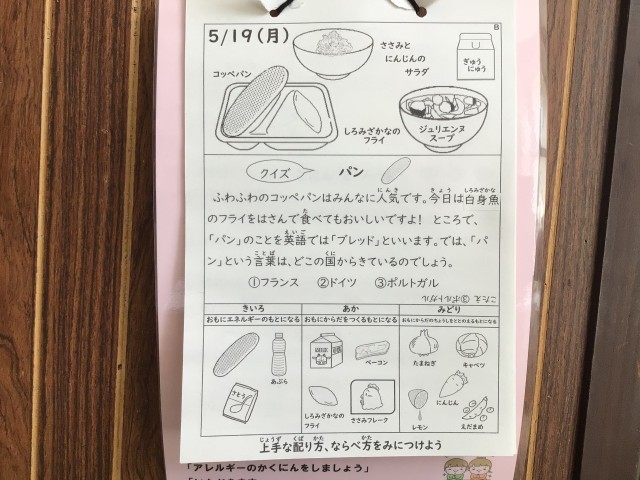 B
5/19(月)
ささみと
にんじんの
サラダ
ぎゅう
にゅう
コッペパン
しろみざかなの
フライ
ジュリエンヌ
スープ
クイズ
パン
ふわふわのコッペパンはみんなに人気です。今日は白身魚
にんき
きょう
しろみざかな
のフライをはさんで食べてもおいしいですよ! ところで、
た
「パン」のことを英語では「ブレッド」といいます。では、「パ
えいご
ン」という言葉は、どこの国からきているのでしょう。
ことば
くに
①フランス ②ドイツ ③ポルトガル
こたえ ③ポルトガル
きいろ
おもにエネルギーのもとになる
あか
おもにからだをつくるもとになる
みどり
おもにからだのちょうしをととのえるもとになる
あぶら
さとう
ベーコン
しろみざかなの
フライ
ささみフレーク
たまねぎ
キャベツ
にんじん
レモン
えだまめ
じょうず
くば
かた
かた
上手な配り方、ならべ方をみにつけよう
「アレルギーのかくにんをしましょう」